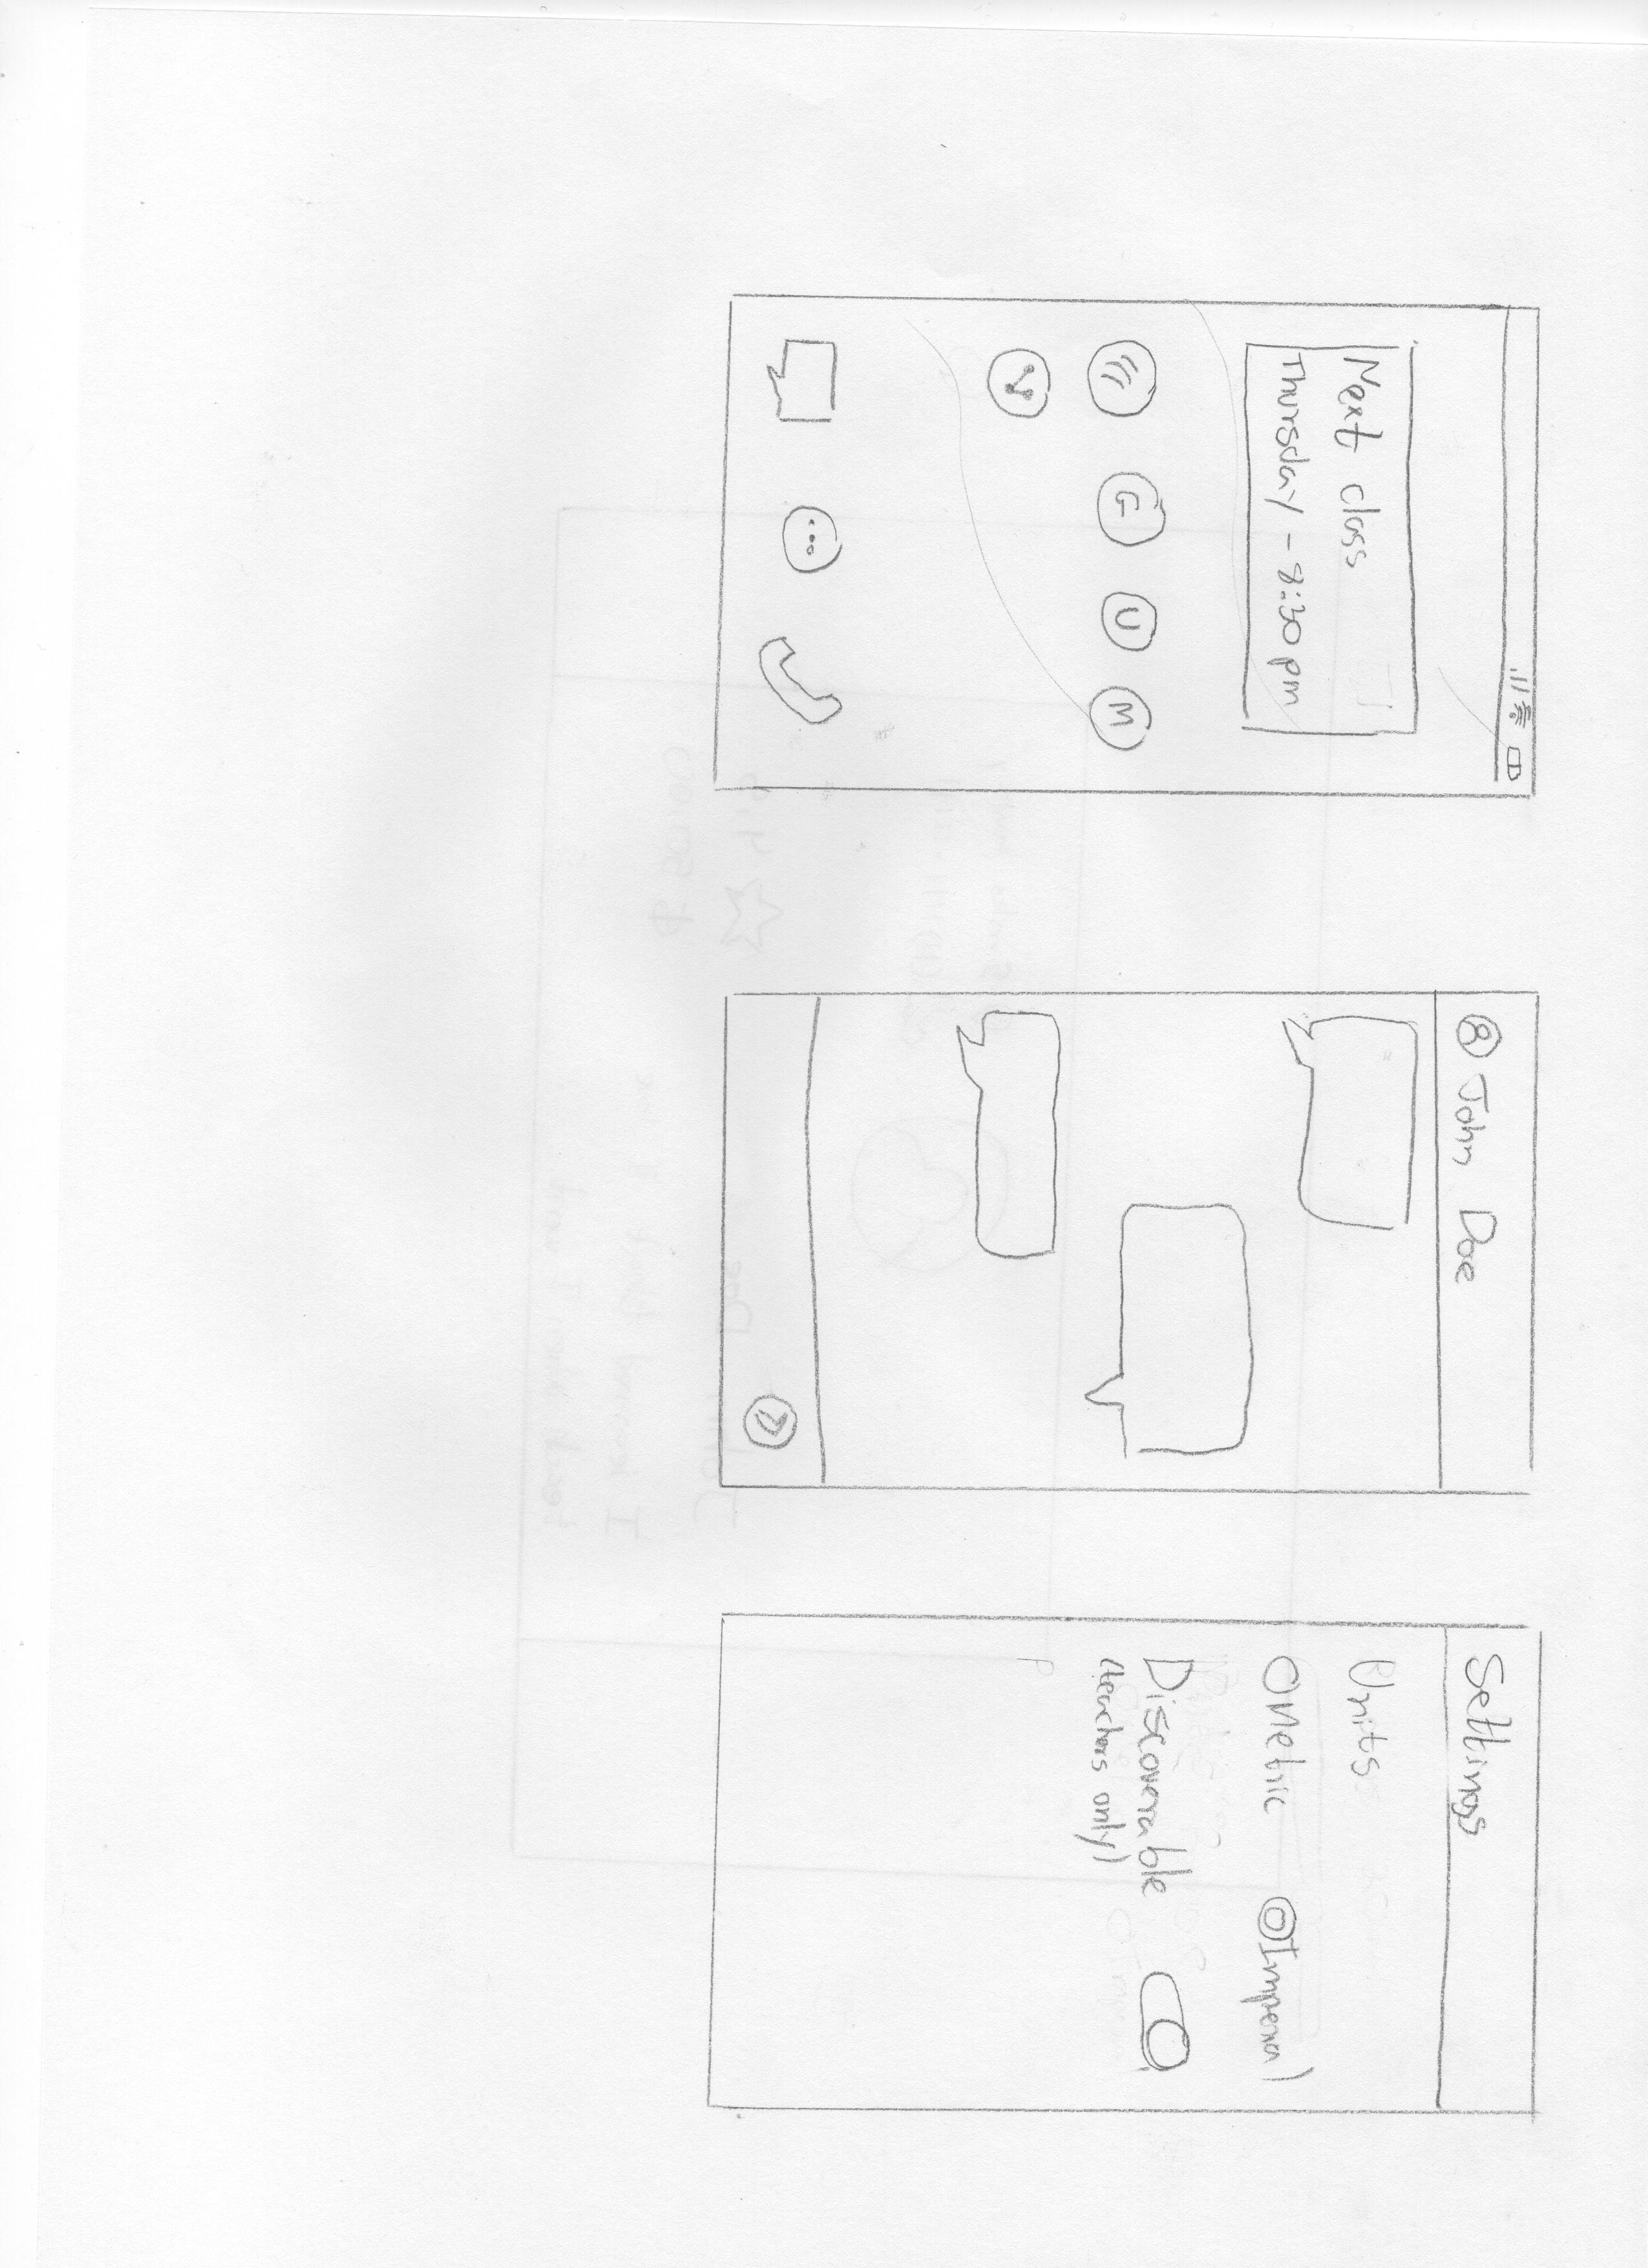 Next class
Thursday - 8:30 pm
G U M
John Doe
Settings
Units
Metric Imperial
Discoverable
(teachers only)